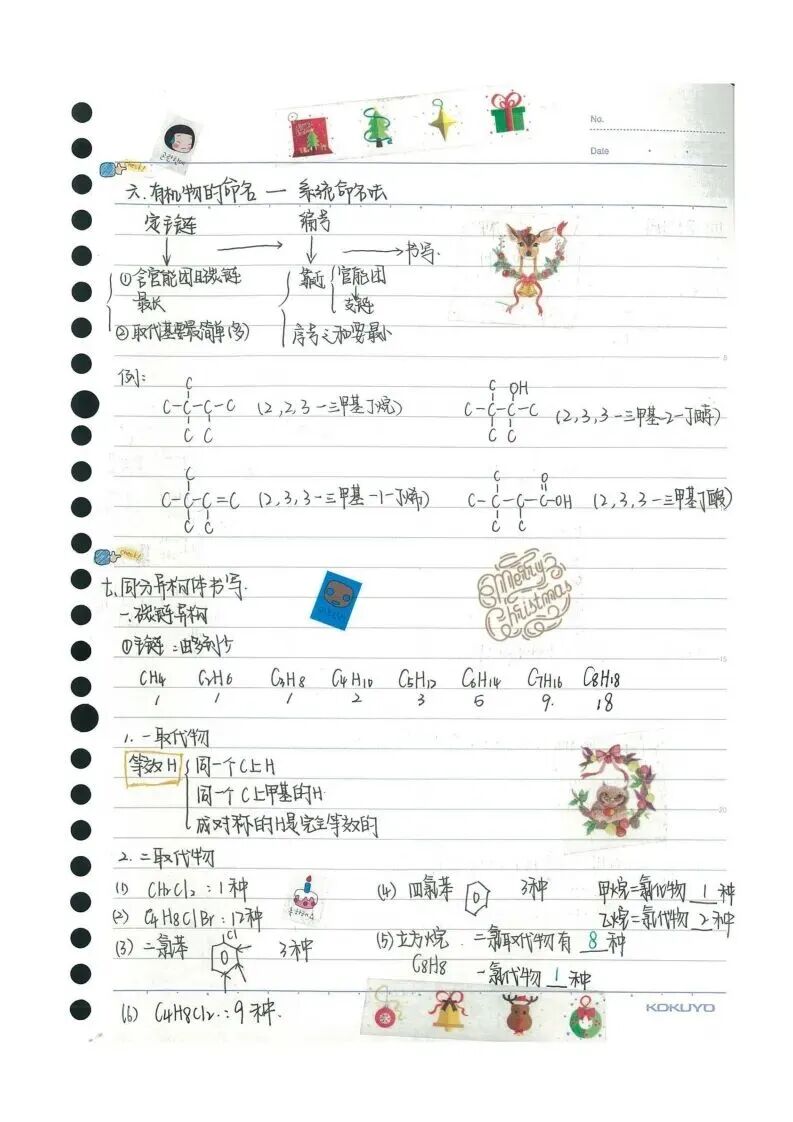 No.
Date
六.有机物的命名 — 系统命名法
定主链 编号
→ → 书写.
①含官能团且碳链 靠近 官能团
最长 支链
②取代基要最简单(多) 序号之和要最小
8
例:
C OH
C C
C-C-C-C (2,2,3-三甲基丁烷) C-C-C-C (2,3,3-三甲基-2-丁醇)
C C C C
C O
C-C-C=C (2,3,3-三甲基-1-丁烯) C-C-C-C-OH (2,3,3-三甲基丁酸)
C C C C
Merry
Christmas
七.同分异构体书写.
一.碳链异构
①主链:由多到少
15
CH4 C2H6 C3H8 C4H10 C5H12 C6H14 C7H16 C8H18
1 1 1 2 3 5 9. 18
1.一取代物
等效H 同一个C上H
同一个C上甲基的H
成对称的H是完全等效的
20
2.二取代物
(1) CH2Cl2:1种 (4) 四氯苯 3种 甲烷=氯代物 1 种
(2) C4H8ClBr:12种 乙烷=氯代物 2 种
(3) 二氯苯 Cl 3种 (5)立方烷 二氯取代物有 8 种
C8H8 一氯代物 1 种
(6) C4H8Cl2.:9种.
KOKUYO